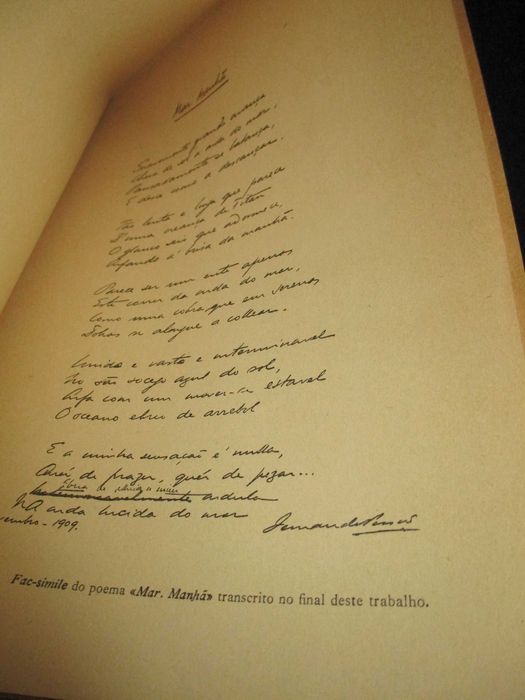 Mar. Manhã
Suavemente grande avança
Cheia de sol a onda do mar,
Pausadamente se balança,
E desce como a descançar.
Tão lenta e longa que parece
D'uma creança de Titan
O glauco seio que adormece,
Arfando à brisa da manhã.
Parece ser um ente apenas
Este correr da onda do mar,
Como uma cobra que em serenas
Dobras se alongue a collear.
Unido e vasto e interminavel
No são socego azul do sol,
Arfa com um mover-se estavel
O oceano ebrio de arrebol
E a minha sensação é nulla,
Quér de prazer, quér de pezar...
Ebria de alheia a mim
ondula
Na onda lucida do mar
Fernando Pessôa
embro-1909.
Fac-simile do poema «Mar. Manhã» transcrito no final deste trabalho.